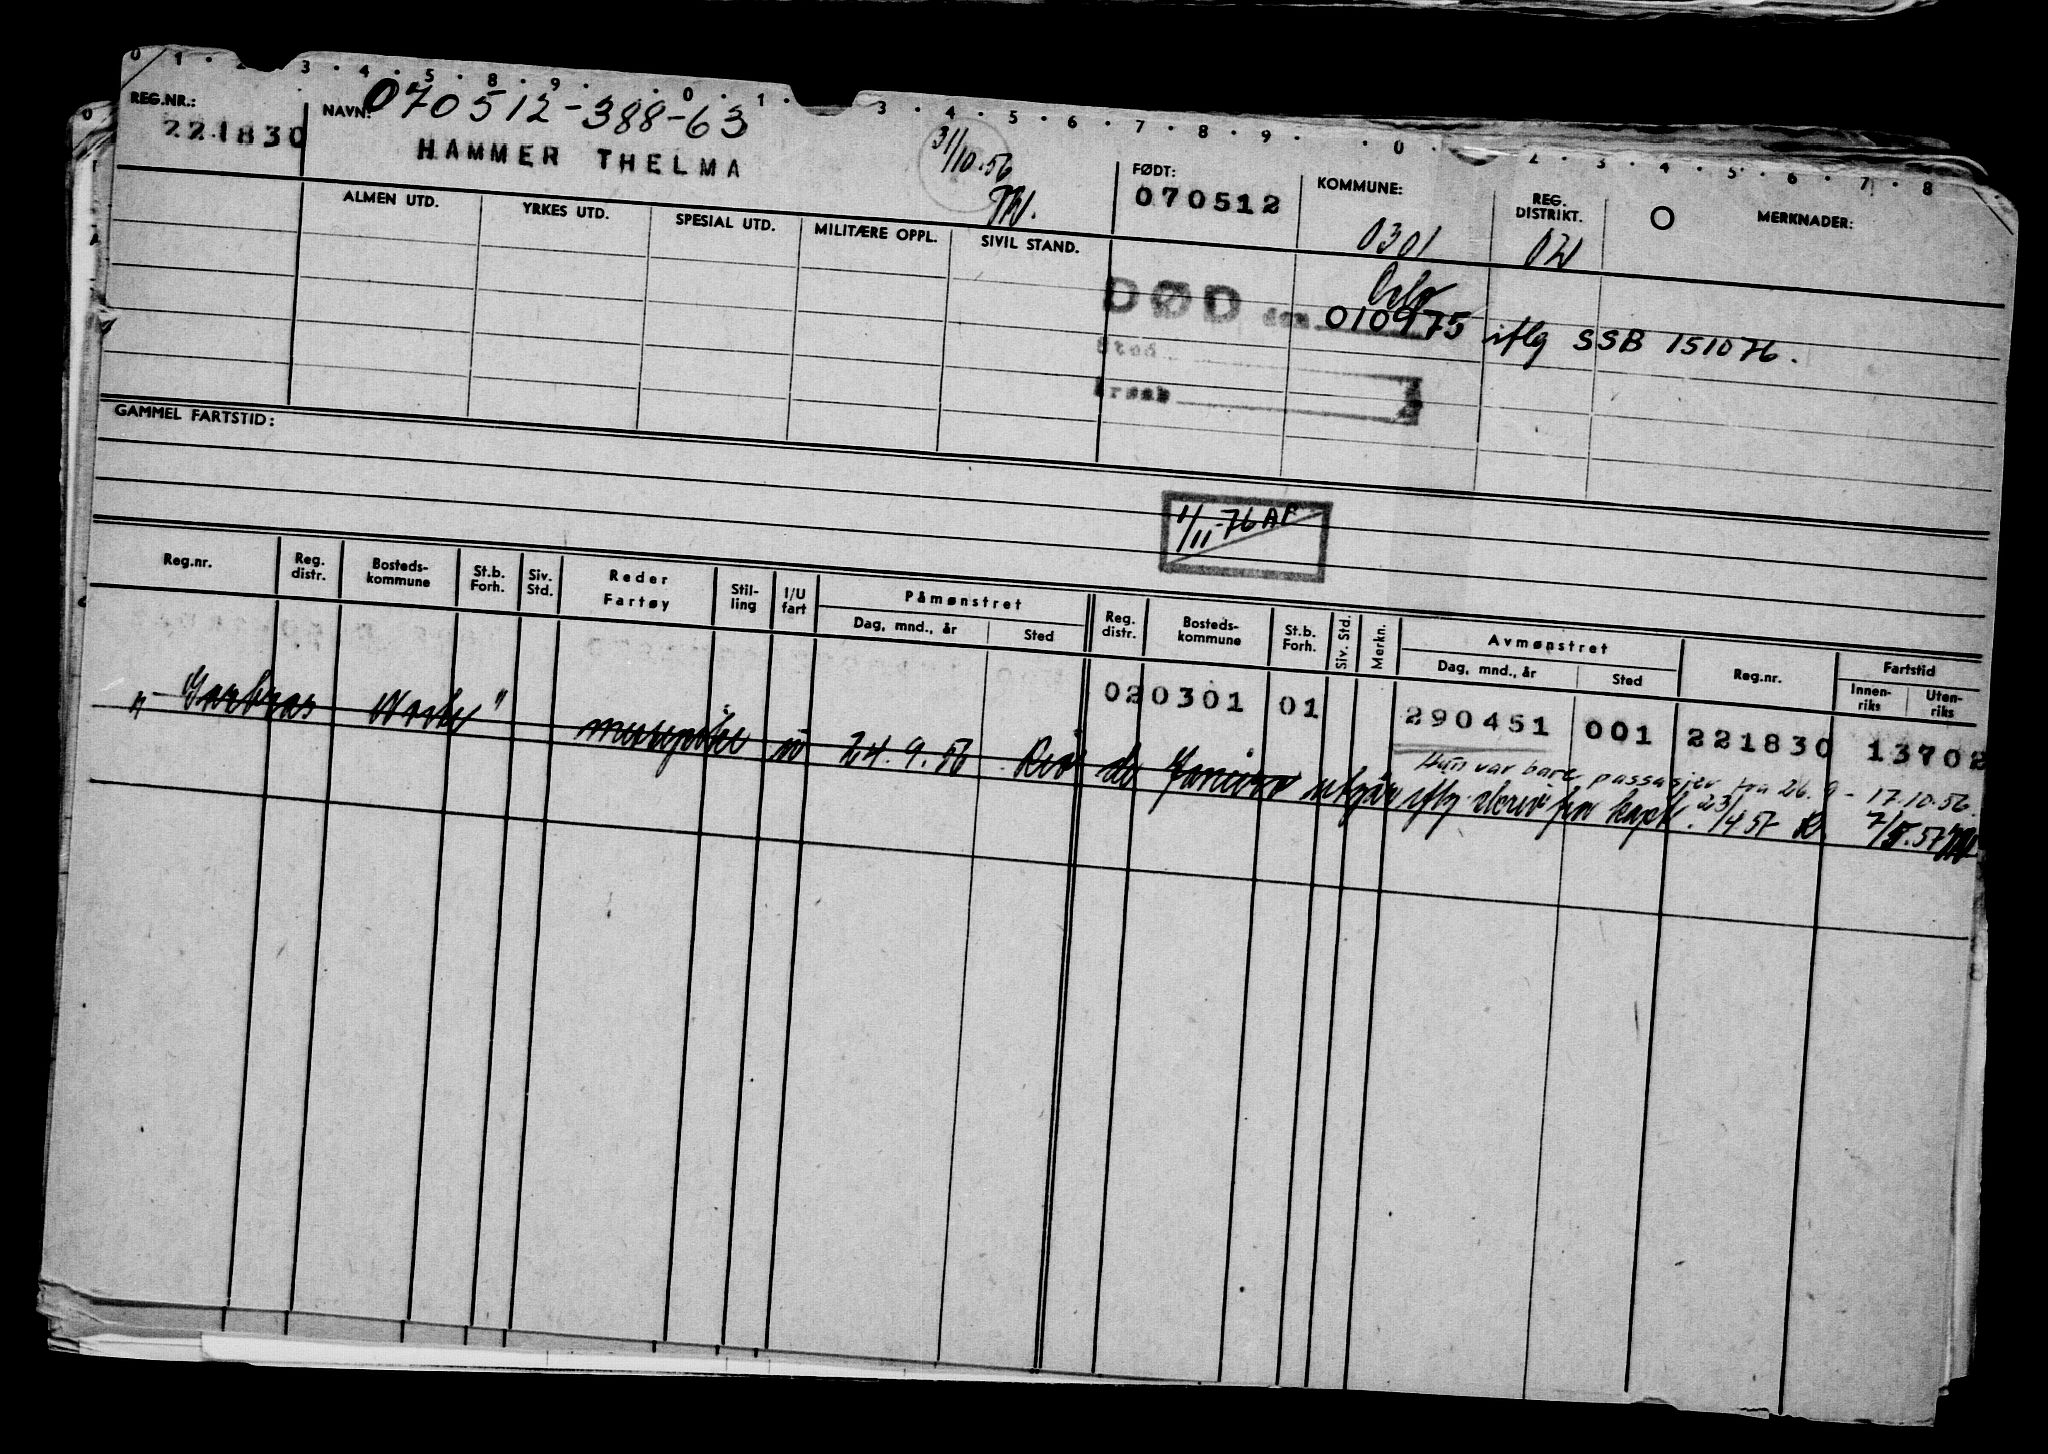 0 1 · 2 3 · 4 · 5 · 8 · 9 · 0 · 1 · 3 · 4 · 5 · 6 · 7 · 8 · 9 · · 0 · 2 · 3 · 4 · 5 · 6 · 7 · 8
REG.NR.:
221830
NAVN:
070512-388-63
HAMMER THELMA
31/10.56
FØDT:
070512
KOMMUNE:
0301
Oslo
REG. DISTRIKT.
02
MERKNADER:
ALMEN UTD. YRKES UTD. SPESIAL UTD. MILITÆRE OPPL. SIVIL STAND.
DØD den 010975 iflg SSB 151076.
Sted
Årsak
GAMMEL FARTSTID:
1/11-76 AF
Reg.nr. Reg. distr. Bosteds-kommune St.b. Forh. Siv. Std. Reder Fartøy Stil-ling I/U fart Påmønstret Dag, mnd., år Sted Reg. distr. Bosteds-kommune St.b. Forh. Siv. Std. Merkn. Avmønstret Dag, mnd., år Sted Reg.nr. Fartstid Innen-riks Uten-riks
020301 01 290451 001 221830 13702
Hun var bare passasjer fra 26.9 - 17.10.56.
" " 24.9.56 Rio de Janeiro utgår iflg skriv fra kapt. 23/4 57 7/5.57